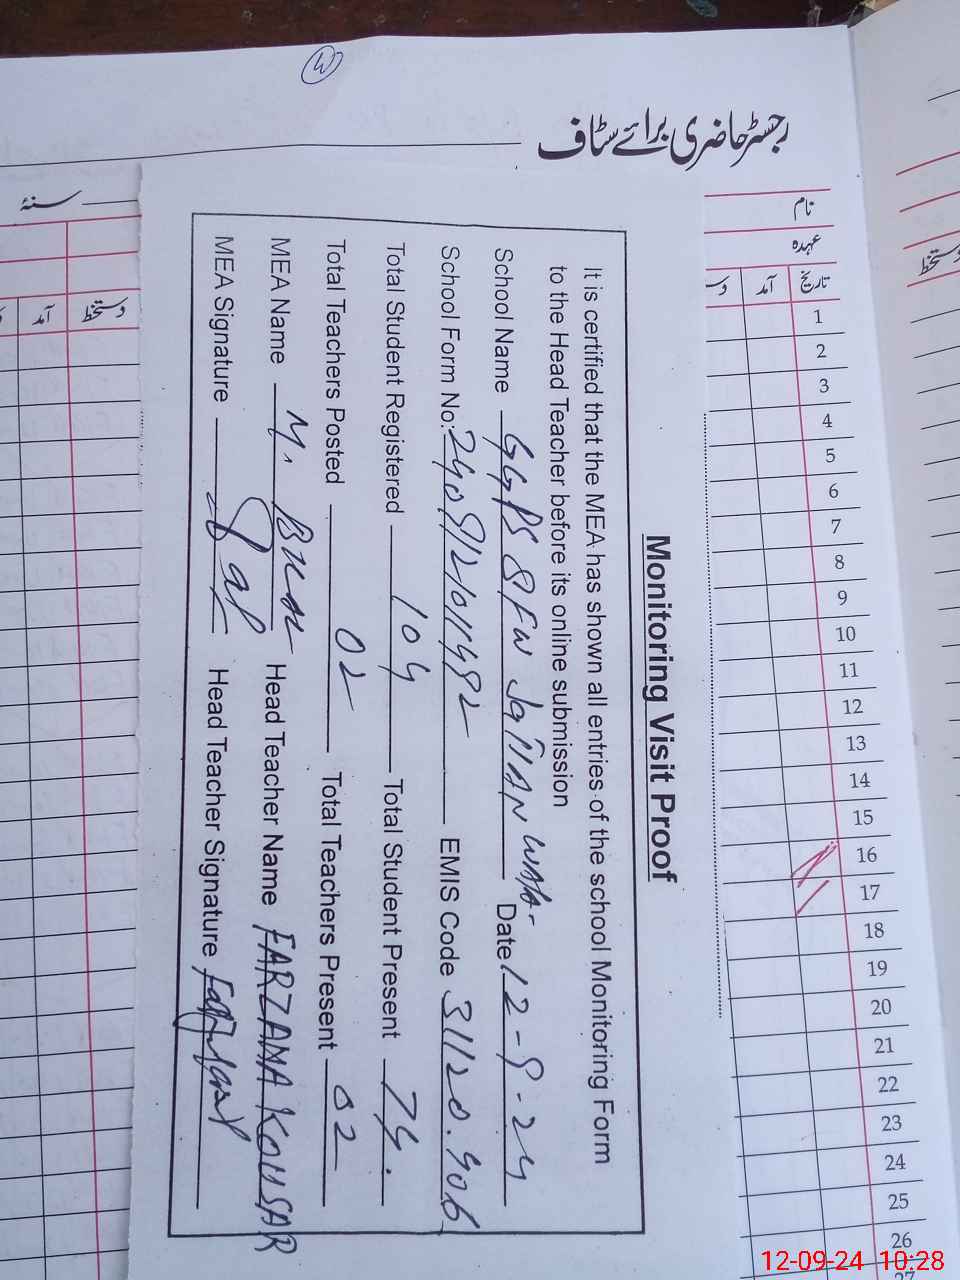 رجسٹر حاضری برائے سٹاف
نام
عہدہ
سنۂ
تاریخ آمد
دستخط آمد
دستخط
1
2
3
4
5
6
7
8
9
10
11
12
13
14
15
16
17
18
19
20
21
22
23
24
25
26
27
Monitoring Visit Proof
It is certified that the MEA has shown all entries of the school Monitoring Form
to the Head Teacher before its online submission
School Name GGPS SFW Date 12-9-24
School Form No: EMIS Code 31120.406
Total Student Registered 104 Total Student Present 74.
Total Teachers Posted 02 Total Teachers Present 02
MEA Name M. Head Teacher Name FARZANA KOUSAR
MEA Signature Head Teacher Signature
12-09-24 10:28